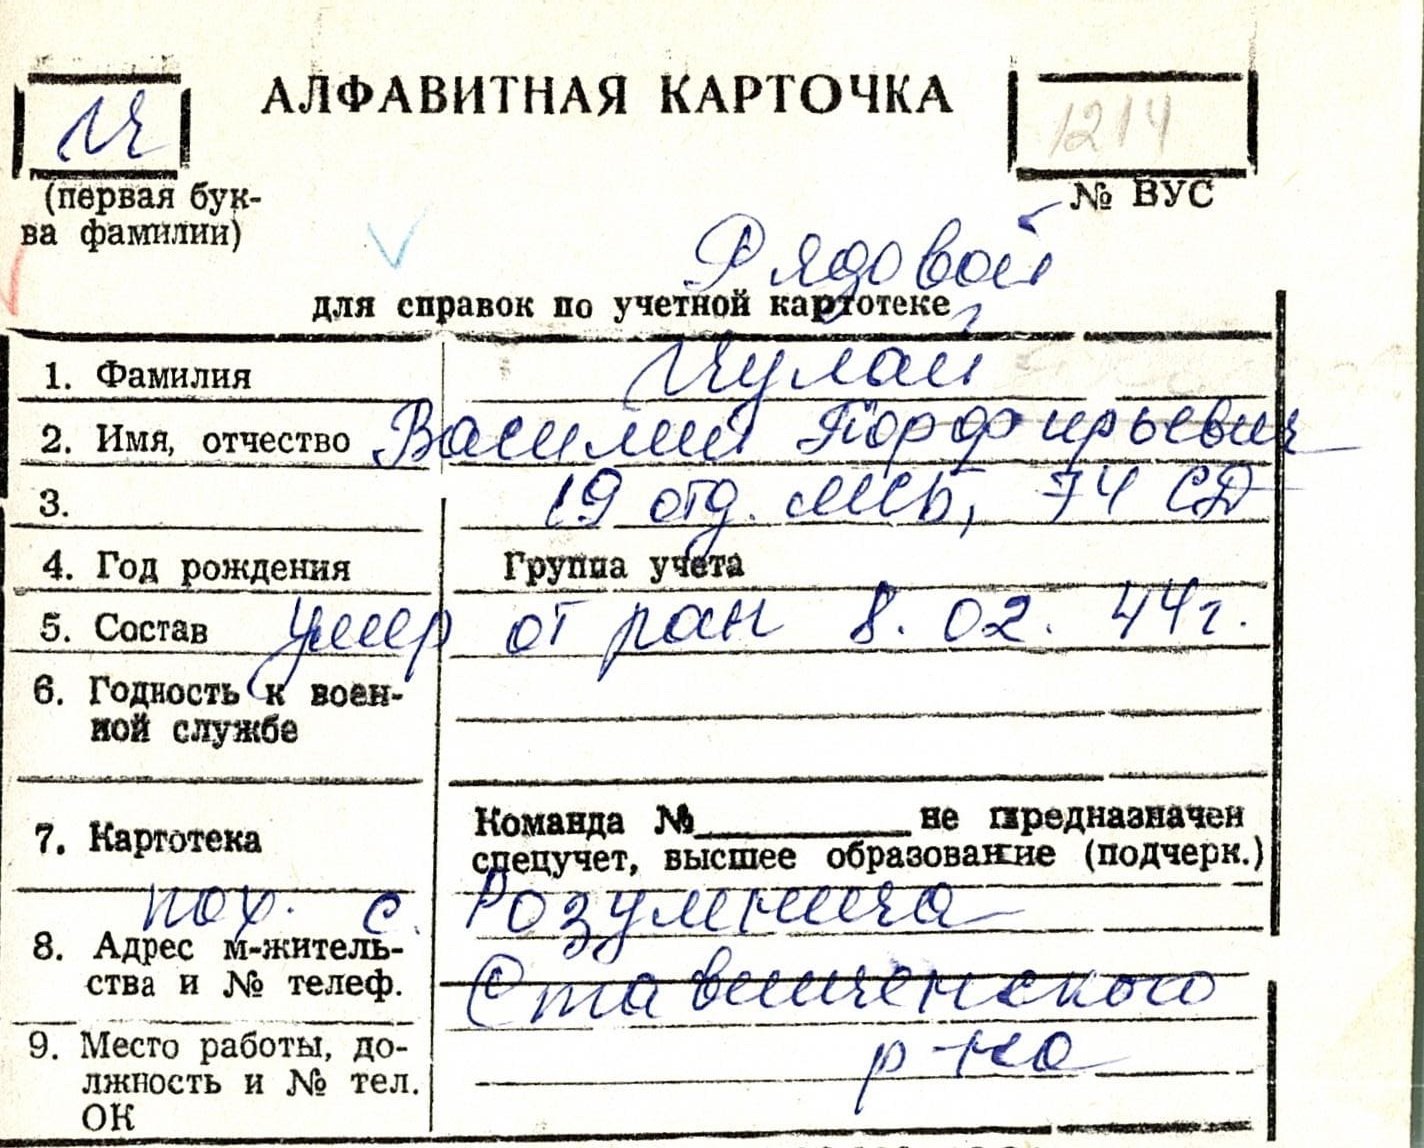 АЛФАВИТНАЯ КАРТОЧКА
Ч
1214
(первая бук-
ва фамилии)
№ ВУС
Рядовой
для справок по учетной картотеке
1. Фамилия Чулай
2. Имя, отчество Василий Порфирьевич
3. 19 отд. мсб, 74 СД
4. Год рождения Группа учета
5. Состав умер от ран 8.02.44г.
6. Годность к воен-
ной службе
7. Картотека Команда № не предназначен
спецучет, высшее образование (подчерк.)
пох. с. Розумница
8. Адрес м-житель-
ства и № телеф. Ставищенского
9. Место работы, до- р-на
лжность и № тел.
ОК